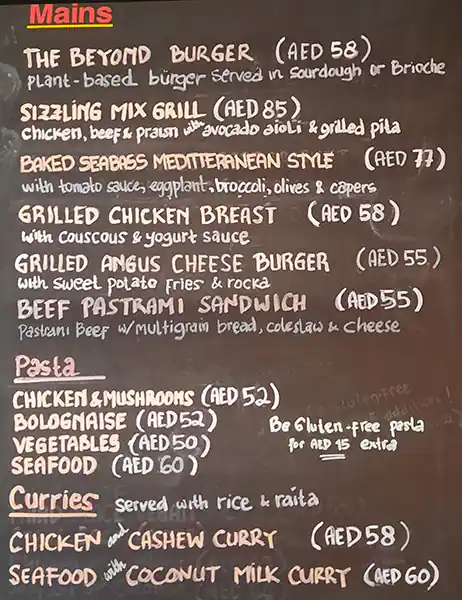 Mains
THE BEYOND BURGER (AED 58)
Plant-based burger served in Sourdough or Brioche
SIZZLING MIX GRILL (AED 85)
chicken, beef & prawn with avocado aioli & grilled pita
BAKED SEABASS MEDITTERANEAN STYLE (AED 77)
with tomato sauce, eggplant, broccoli, olives & capers
GRILLED CHICKEN BREAST (AED 58)
with couscous & yogurt sauce
GRILLED ANGUS CHEESE BURGER (AED 55)
with sweet potato fries & rocka
BEEF PASTRAMI SANDWICH (AED 55)
Pastrami Beef w/multigrain bread, coleslaw & cheese
Pasta
CHICKEN & MUSHROOMS (AED 52)
BOLOGNAISE (AED 52)
VEGETABLES (AED 50)
SEAFOOD (AED 60)
Be Gluten-free pasta
for AED 15 extra
Curries served with rice & raita
CHICKEN and CASHEW CURRY (AED 58)
SEAFOOD with COCONUT MILK CURRY (AED 60)